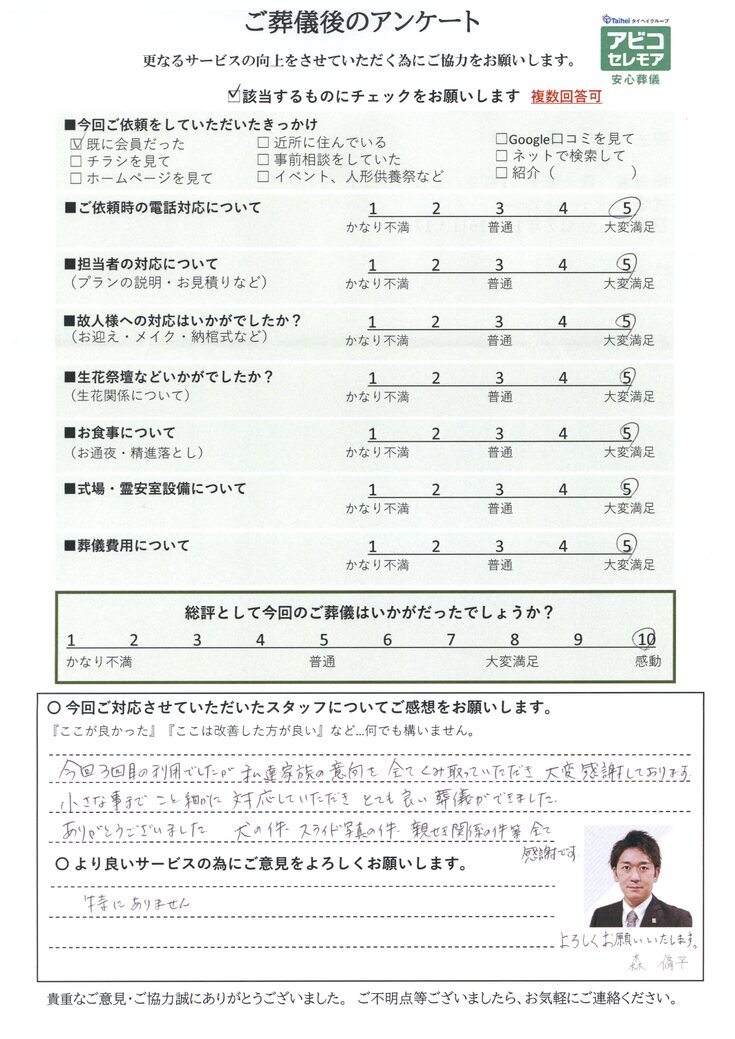 ご葬儀後のアンケート
Taihei タイヘイグループ
アビコ
セレモア
安心葬儀
更なるサービスの向上をさせていただく為にご協力をお願いします。
☑該当するものにチェックをお願いします 複数回答可
■今回ご依頼をしていただいたきっかけ
☑既に会員だった □近所に住んでいる □Google口コミを見て
□チラシを見て □事前相談をしていた □ネットで検索して
□ホームページを見て □イベント、人形供養祭など □紹介（ ）
■ご依頼時の電話対応について 1 2 3 4 5
かなり不満 普通 大変満足
■担当者の対応について 1 2 3 4 5
（プランの説明・お見積りなど） かなり不満 普通 大変満足
■故人様への対応はいかがでしたか？ 1 2 3 4 5
（お迎え・メイク・納棺式など） かなり不満 普通 大変満足
■生花祭壇などいかがでしたか？ 1 2 3 4 5
（生花関係について） かなり不満 普通 大変満足
■お食事について 1 2 3 4 5
（お通夜・精進落とし） かなり不満 普通 大変満足
■式場・霊安室設備について 1 2 3 4 5
かなり不満 普通 大変満足
■葬儀費用について 1 2 3 4 5
かなり不満 普通 大変満足
総評として今回のご葬儀はいかがだったでしょうか？
1 2 3 4 5 6 7 8 9 10
かなり不満 普通 大変満足 感動
〇 今回ご対応させていただいたスタッフについてご感想をお願いします。
『ここが良かった』『ここは改善した方が良い』など…何でも構いません。
今回3回目の利用でしたが 私達家族の意向を 全てくみ取っていただき 大変感謝しております
小さな事まで こと細かに 対応していただき とても良い葬儀ができました.
ありがとうございました 犬の件. スライド写真の件. 親せき関係の件等 全て
感謝です
〇 より良いサービスの為にご意見をよろしくお願いします。
特にありません
よろしくお願いいたします。
森 脩平
貴重なご意見・ご協力誠にありがとうございました。 ご不明点等ございましたら、お気軽にご連絡ください。